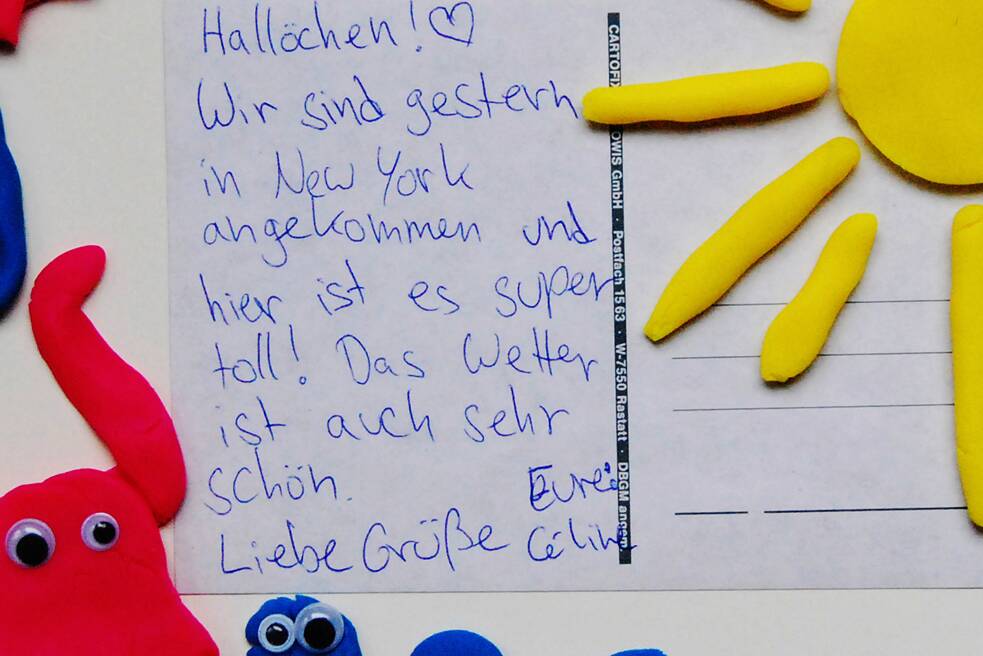 Hallöchen! ♡
Wir sind gestern
in New York
angekommen und
hier ist es super
toll! Das Wetter
ist auch sehr
schön.
Liebe Grüße Eure
Célin
CARTOFIX OWIS GmbH · Postfach 1563 · W-7550 Rastatt · DBGM angem.